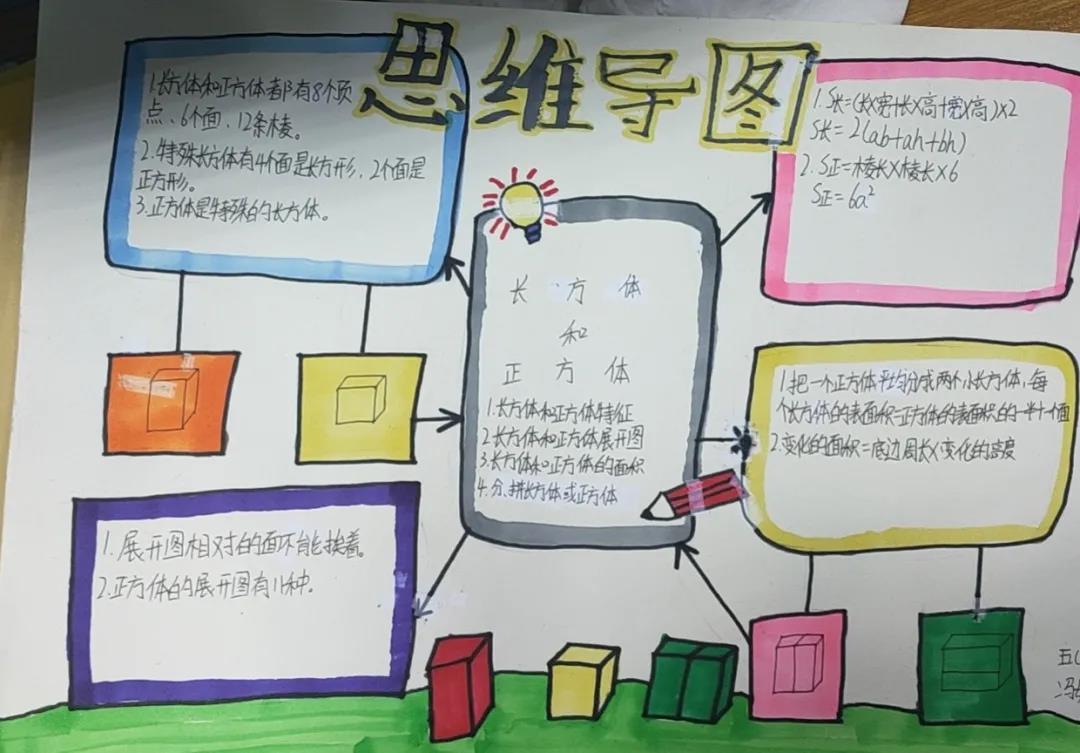 思维导图
1.长方体和正方体都有8个顶
点、6个面、12条棱。
2.特殊长方体有4个面是长方形、2个面是
正方形。
3.正方体是特殊的长方体。
1.S长=(长×宽+长×高+宽×高)×2
S长=2(ab+ah+bh)
2.S正=棱长×棱长×6
S正=6a²
长方体
和
正方体
1.长方体和正方体特征
2.长方体和正方体展开图
3.长方体和正方体的面积
4.分、拼长方体或正方体
1.把一个正方体平均分成两个小长方体,每
个长方体的表面积=正方体的表面积的一半+一个面
2.变化的面积=底边周长×变化的高度
1.展开图相对的面不能挨着。
2.正方体的展开图有11种。
五(
冯